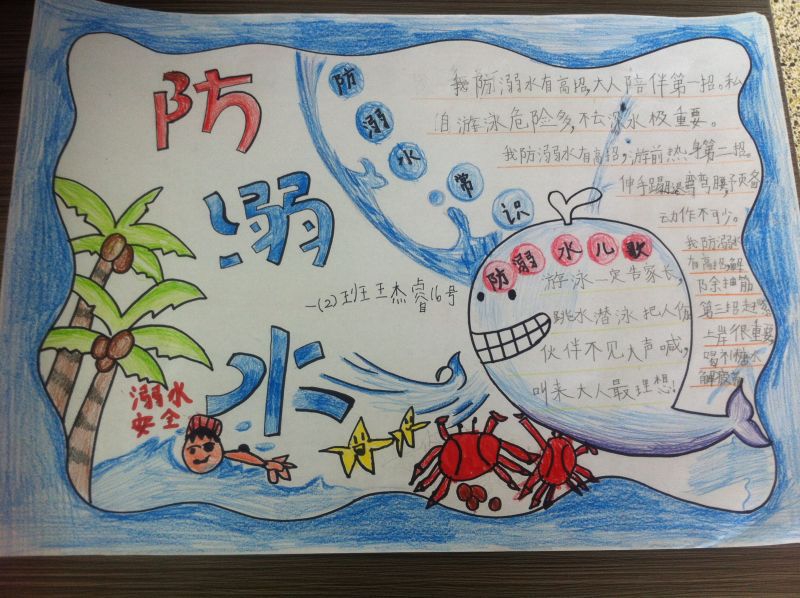 防
溺
水
防溺水常识
我防溺水有高招,大人陪伴第一招。私
自游泳危险多,不去深水极重要。
我防溺水有高招,游前热身第二招。
伸手踢腿弯弯腰,预备
动作不可少。
我防溺水
有高招,解
除抽筋
第三招赶紧
上岸很重要
喝
糖水
解疲劳
一(2)班王杰睿16号
防溺水儿歌
游泳一定告家长,
跳水潜泳把人伤
伙伴不见大声喊,
叫来大人最理想!
溺水
安全